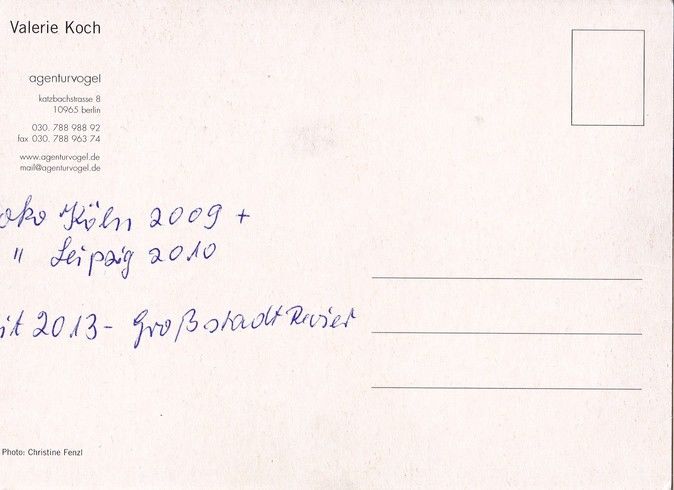 Valerie Koch
agenturvogel
katzbachstrasse 8
10965 berlin
030. 788 988 92
fax 030. 788 963 74
www.agenturvogel.de
mail@agenturvogel.de
oko Köln 2009 +
" Leipzig 2010
it 2013- Großstadt Revier
Photo: Christine Fenzl